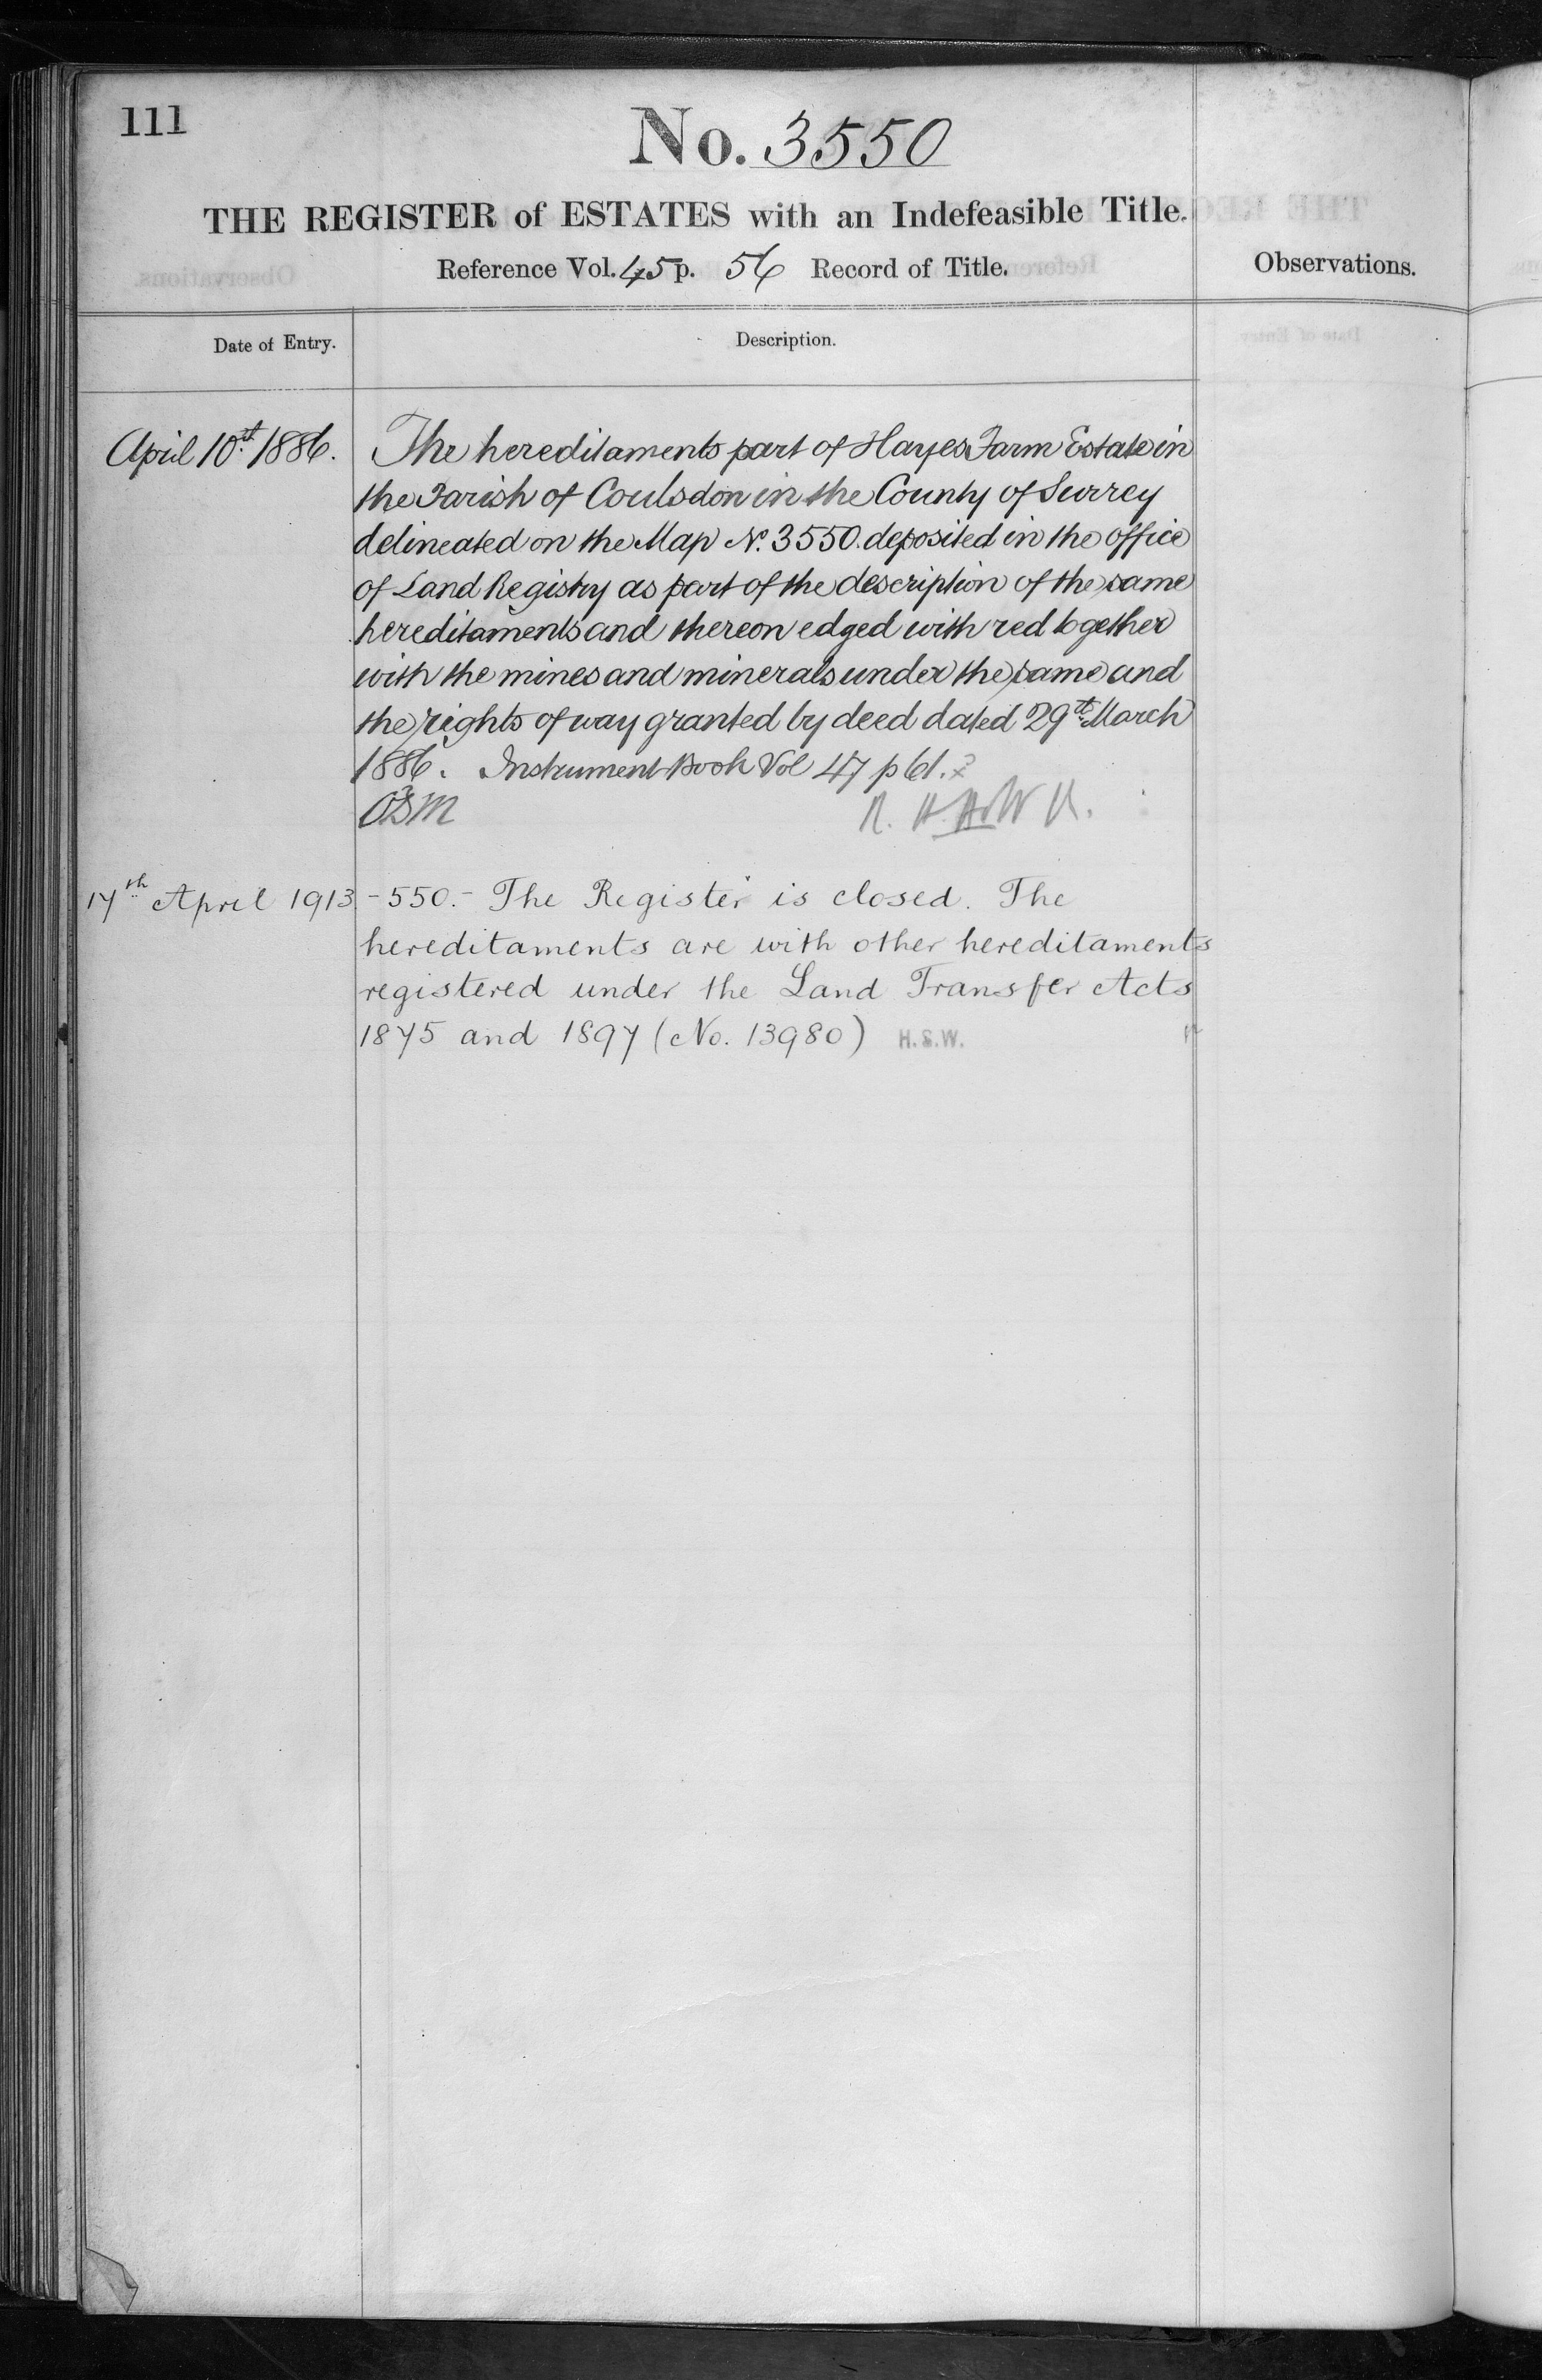 111
No. 3550
THE REGISTER of ESTATES with an Indefeasible Title.
Reference Vol. 45 p. 56 Record of Title.
Observations.
Date of Entry.
Description.
April 10th 1886. The hereditaments part of Hayes Farm Estate in
the Parish of Coulsdon in the County of Surrey
delineated on the Map No. 3550. deposited in the office
of Land Registry as part of the description of the same
hereditaments and thereon edged with red together
with the mines and minerals under the same and
the rights of way granted by deed dated 29th March
1886. Instrument Book Vol 47 p 61.
17th April 1913 -550.- The Register is closed. The
hereditaments are with other hereditaments
registered under the Land Transfer Acts
1875 and 1897 (No. 13980) H.S.W.